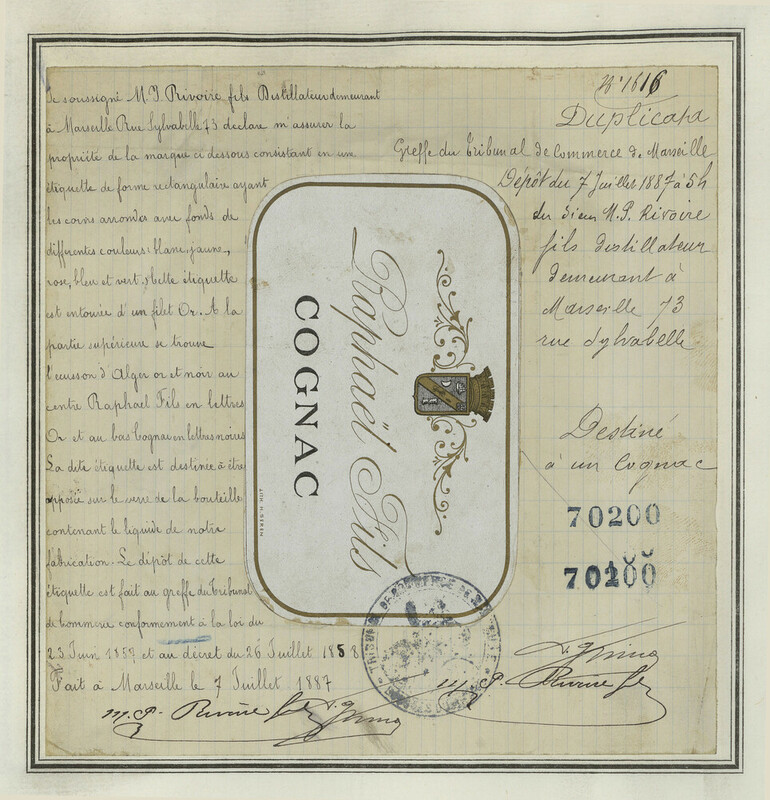 Je soussigné M. P. Rivoire fils Distillateur demeurant
à Marseille Rue Sylvabelle 73 déclare m'assurer la
propriété de la marque ci dessous consistant en une
étiquette de forme rectangulaire ayant
les coins arrondis avec fonds de
différentes couleurs: blanc, jaune,
rose, bleu et vert.) Cette étiquette
est entourée d'un filet Or. A la
partie supérieure se trouve
l'écusson d'Alger or et noir au
centre Raphael Fils en lettres
Or et au bas Cognac en lettres noires
La dite étiquette est destinée à être
apposée sur le verre de la bouteille
contenant le liquide de notre
fabrication. Le dépôt de cette
étiquette est fait au greffe du Tribunal
de Commerce conformement à la loi du
23 Juin 1857 et au décret du 26 Juillet 1858
Fait à Marseille le 7 Juillet 1887
M. P. Rivoire fils
N° 1616
Duplicata
Greffe du Tribunal de Commerce de Marseille
Dépôt du 7 Juillet 1887 à 5h
du Sieur M. P. Rivoire
fils distillateur
demeurant à
Marseille 73
rue Sylvabelle
Destiné
à un Cognac
70200
70200
M. P. Rivoire fils
Raphaël Fils
COGNAC
TRIBUNAL DE COMMERCE DE MARSEILLE